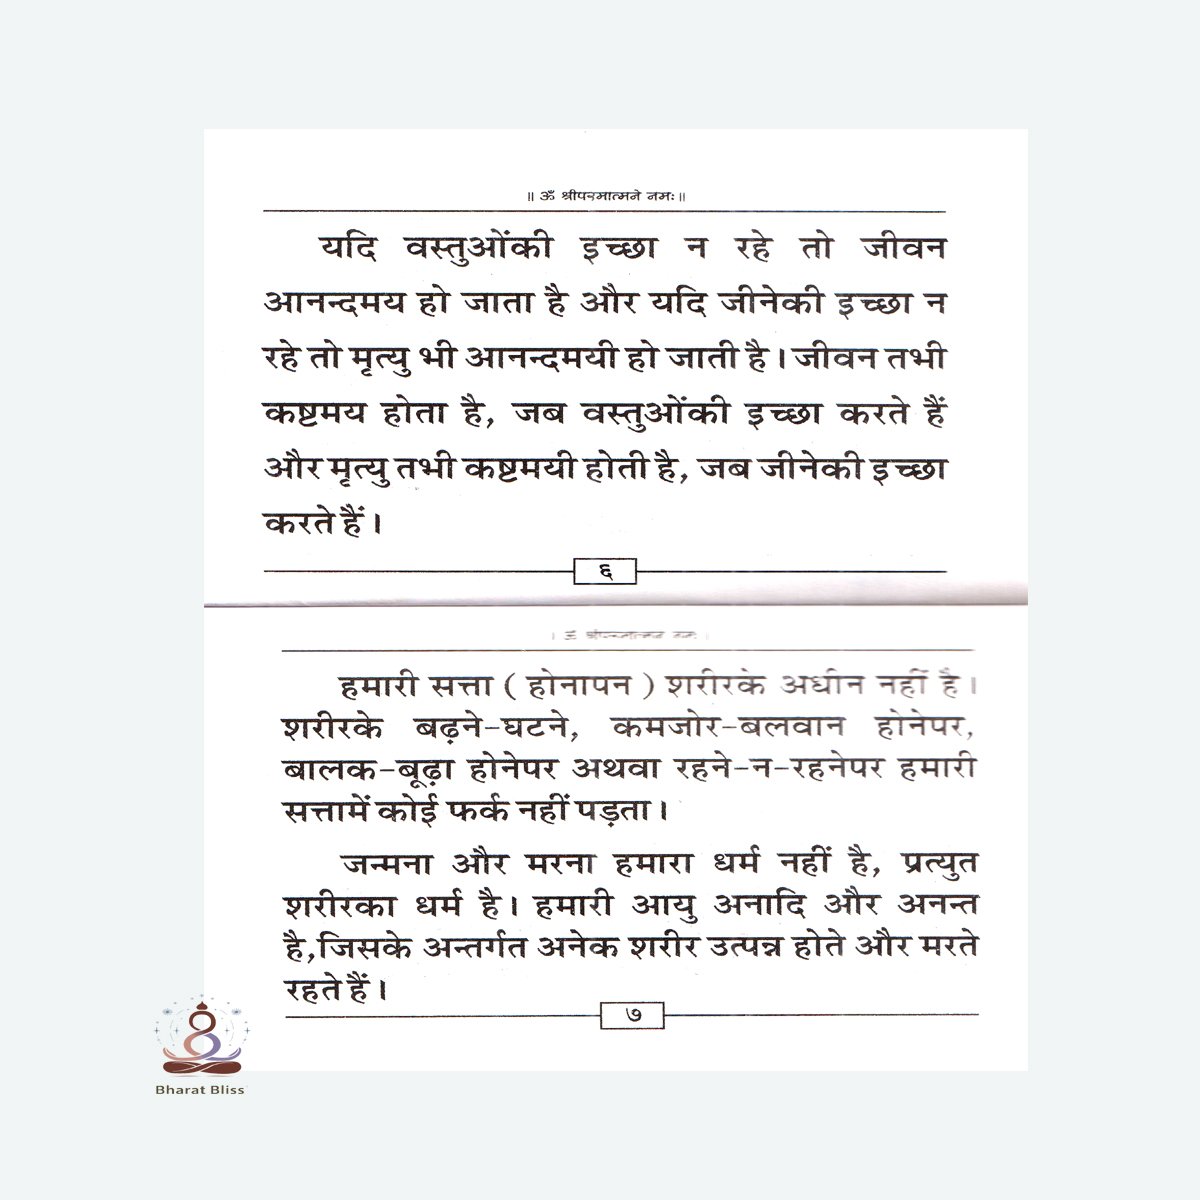 ॥ ॐ श्रीपरमात्मने नमः॥
यदि वस्तुओंकी इच्छा न रहे तो जीवन
आनन्दमय हो जाता है और यदि जीनेकी इच्छा न
रहे तो मृत्यु भी आनन्दमयी हो जाती है। जीवन तभी
कष्टमय होता है, जब वस्तुओंकी इच्छा करते हैं
और मृत्यु तभी कष्टमयी होती है, जब जीनेकी इच्छा
करते हैं।
६
। ॐ श्रीपरमात्मने नमः ।
हमारी सत्ता ( होनापन ) शरीरके अधीन नहीं है।
शरीरके बढ़ने-घटने, कमजोर-बलवान होनेपर,
बालक-बूढ़ा होनेपर अथवा रहने-न-रहनेपर हमारी
सत्तामें कोई फर्क नहीं पड़ता।
जन्मना और मरना हमारा धर्म नहीं है, प्रत्युत
शरीरका धर्म है। हमारी आयु अनादि और अनन्त
है,जिसके अन्तर्गत अनेक शरीर उत्पन्न होते और मरते
रहते हैं।
७
Bharat Bliss